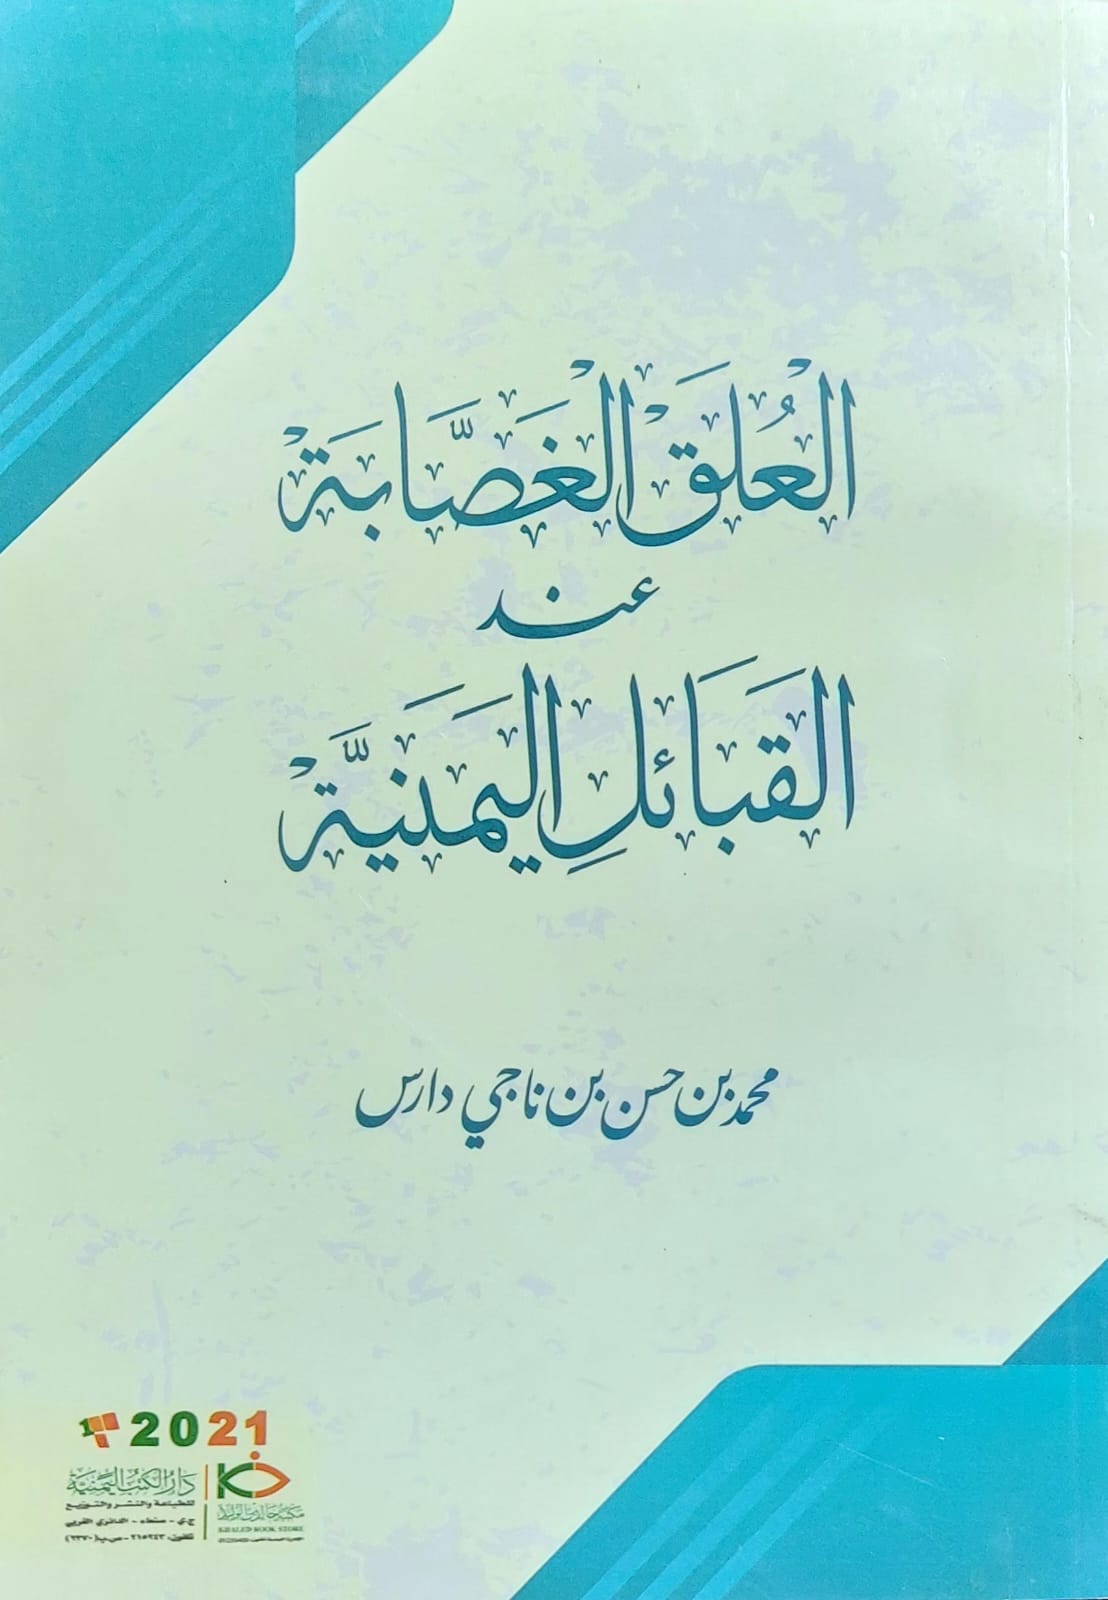 العُلَقْ الْغَصَّابَةْ
عند
القَبَائلِ اليَمَنيَّةْ
محمد بن حسن بن ناجي دارس
2021
دار الكتب اليمنية
للطباعة والنشر والتوزيع
ج.ي - صنعاء - الدائري الغربي
مكتبة خالد بن الوليد
KHALED BOOK STORE